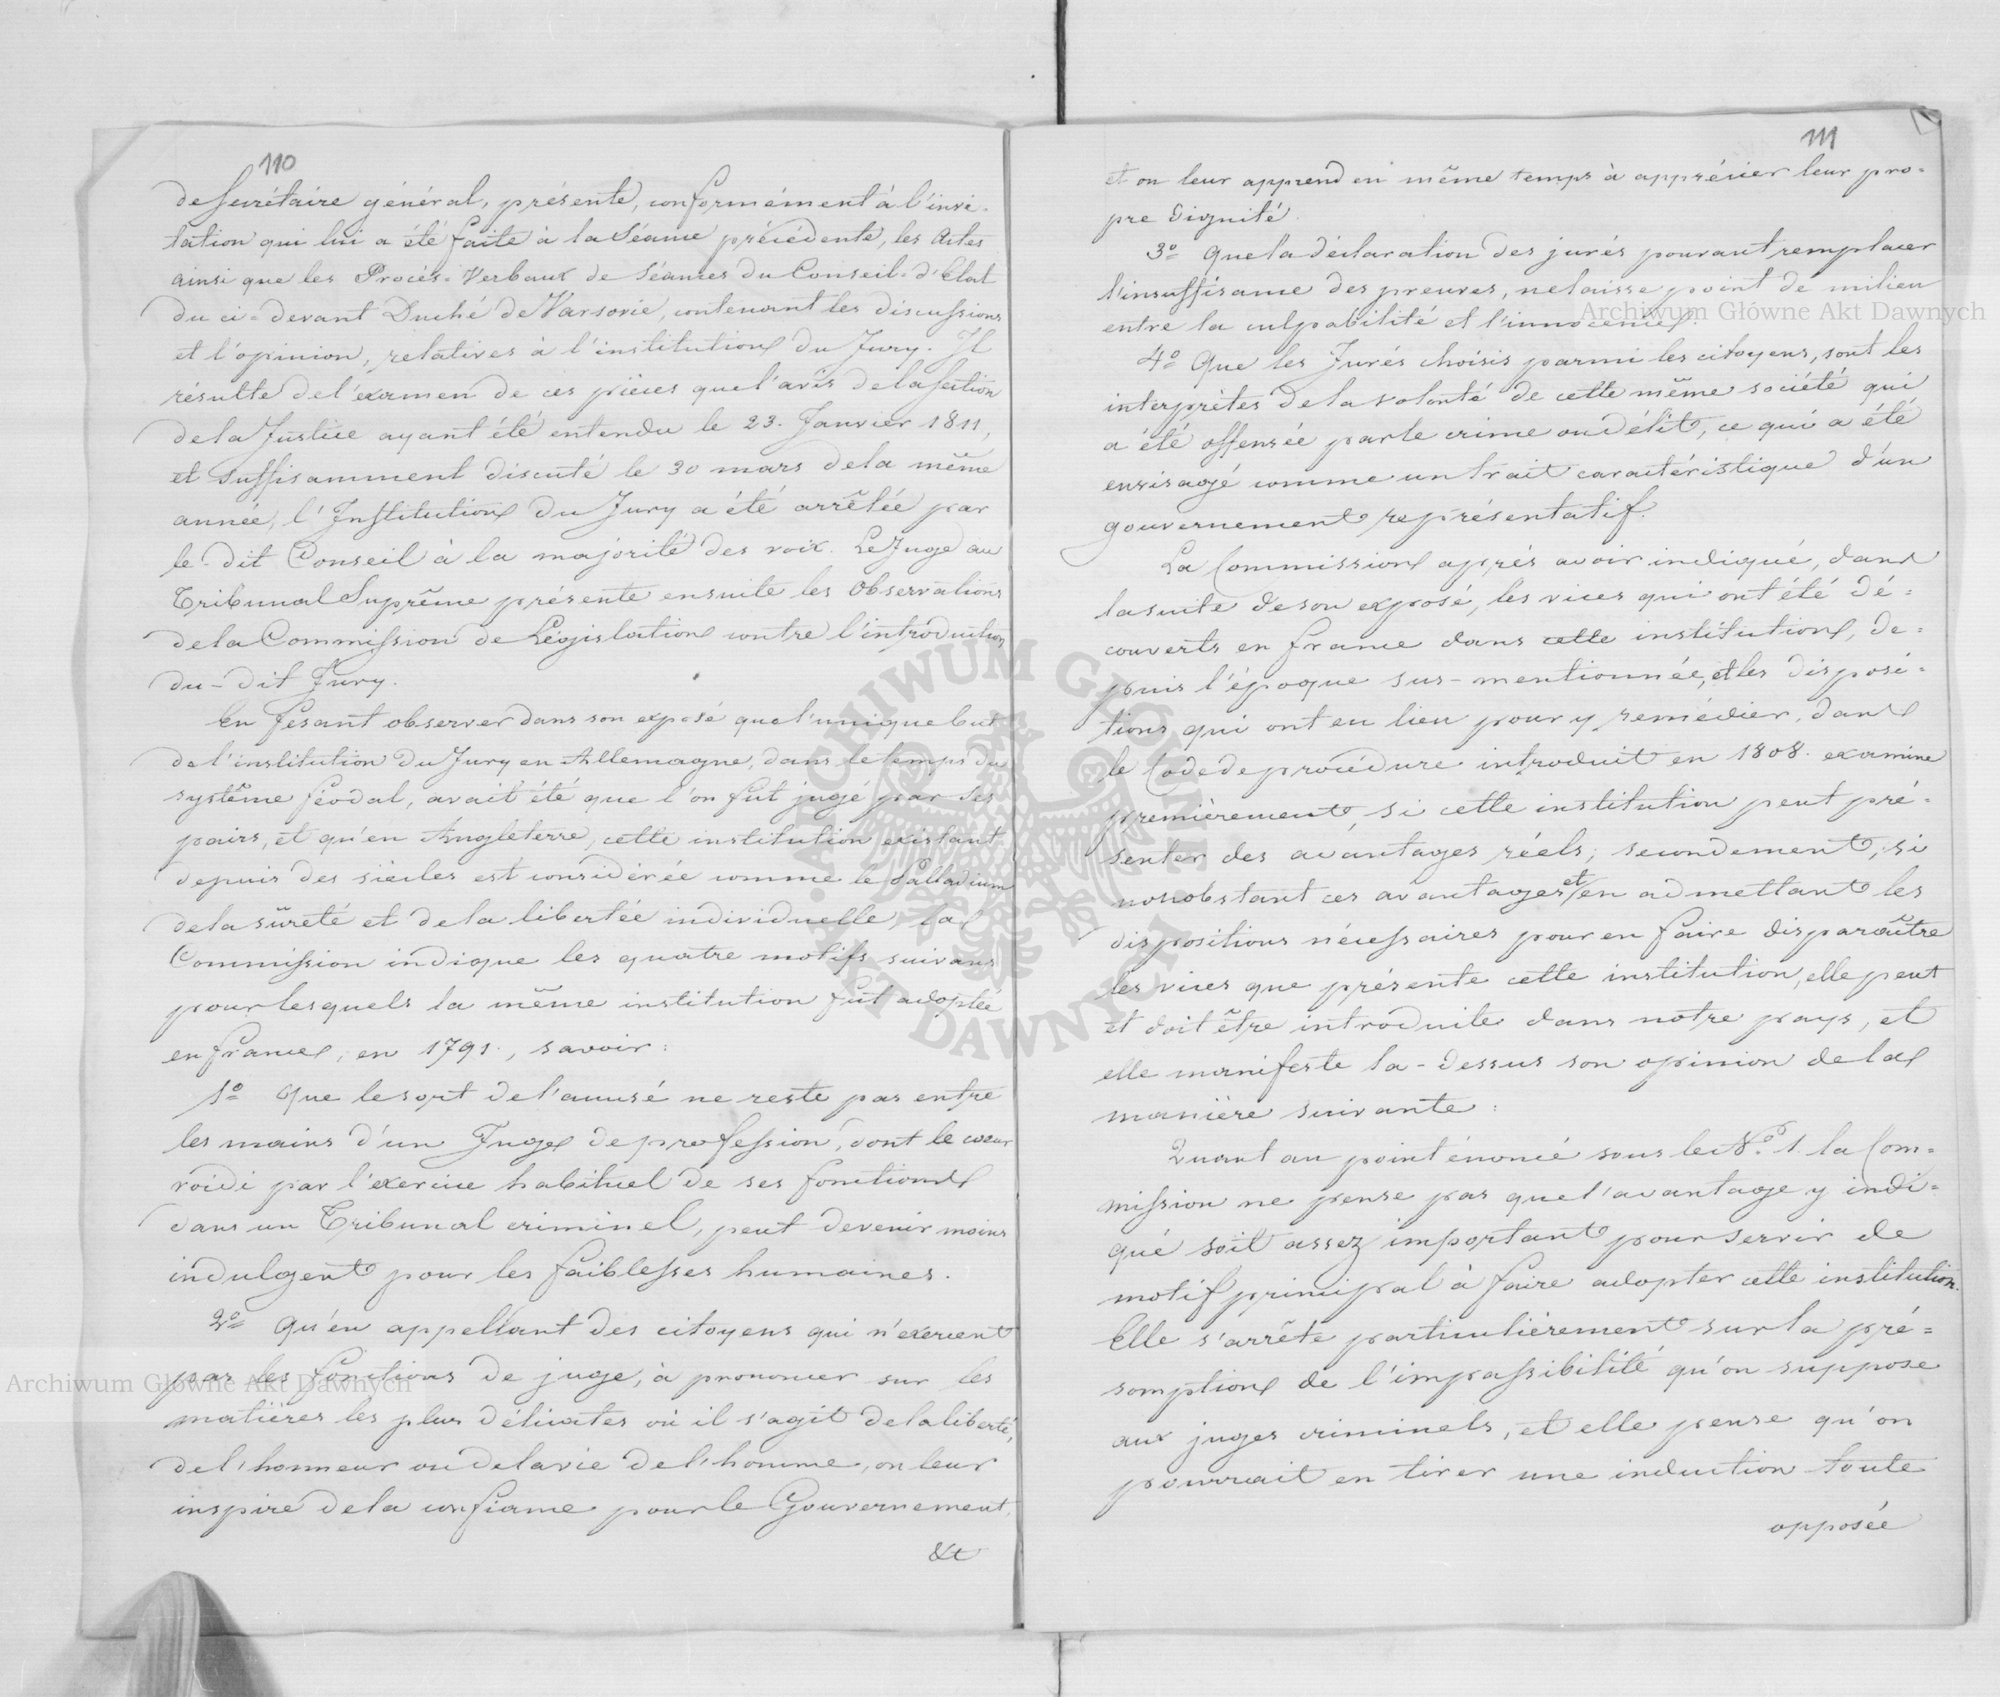 110
de Secrétaire général, présente, conformément à l'invi-
tation qui lui a été faite à la Séance précédente, les Actes
ainsi que les Procès-Verbaux de Séances du Conseil-d'Etat
du ci-devant Duché de Varsovie, contenant les discussions
et l'opinion, relatives à l'institution du Jury. Il
résulte de l'examen de ces pièces que l'avis de la Section
de la Justice ayant été entendu le 23. Janvier 1811,
et suffisamment discuté le 30 mars de la même
année, l'Institution du Jury a été arrêtée par
le-dit Conseil à la majorité des voix. Le Juge au
Tribunal Suprême présente ensuite les Observations
de la Commission de Législation contre l'introduction
du-dit Jury.
En fesant observer dans son exposé que l'unique but
de l'institution du Jury en Allemagne, dans le temps du
système féodal, avait été que l'on fut jugé par ses
pairs, et qu'en Angleterre, cette institution existant
depuis des siècles est considérée comme le Palladium
de la sûreté et de la libertée individuelle, la
Commission indique les quatre motifs suivans
pour lesquels la même institution fut adoptée
en france, en 1791., savoir:
1º Que le sort de l'accusé ne reste pas entre
les mains d'un Juge de profession, dont le coeur
roidi par l'exercice habituel de ses fonctions
dans un Tribunal criminel, peut devenir moins
indulgent pour les faiblesses humaines.
2º Qu'en appellant des citoyens qui n'exercent
pas les fonctions de juge, à prononcer sur les
matières les plus délicates où il s'agit de la liberté,
de l'honneur ou de la vie de l'homme, on leur
inspire de la confiance pour le Gouvernement,
&t
111
et on leur apprend en même temps à apprécier leur pro-
pre dignité.
3º Que la déclaration des jurés pouvant remplacer
l'insuffisance des preuves, ne laisse point de milieu
entre la culpabilité et l'innocence.
4º Que les Jurés choisis parmi les citoyens, sont les
interprètes de la volonté de cette même société qui
a été offensée par le crime ou délit, ce qui a été
envisagé comme un trait caractéristique d'un
gouvernement représentatif.
La Commission après avoir indiqué, dans
la suite de son exposé, les vices qui ont été dé-
couverts en france dans cette institution, de-
puis l'époque sus-mentionnée, et les disposi-
tions qui ont eu lieu pour y remédier, dans
le Code de procédure introduit en 1808. examine
premièrement, si cette institution peut pré-
senter des avantages réels; secondement, si
nonobstant ces avantages et en admettant les
dispositions nécessaires pour en faire disparaître
les vices que présente cette institution, elle peut
et doit être introduite dans notre pays, et
elle manifeste la-dessus son opinion de la
manière suivante:
Quant au point énoncé sous le Nº 1. la Com-
mission ne pense pas que l'avantage y indi-
qué soit assez important pour servir de
motif principal à faire adopter cette institution.
Elle s'arrête particulièrement sur la pré-
somption de l'impassibilité qu'on suppose
aux juges criminels, et elle pense qu'on
pourrait en tirer une induction toute
opposée
Archiwum Główne Akt Dawnych
Archiwum Główne Akt Dawnych
ARCHIWUM GŁÓWNE AKT DAWNYCH